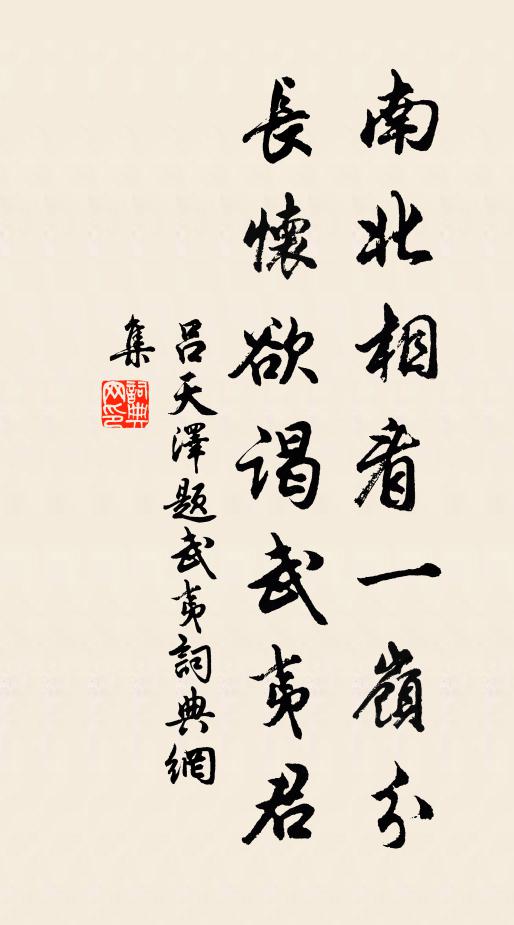 南北相看一嶺分
長懷欲謁武夷君
吕天澤題武夷詞典網
集
詞典
网印